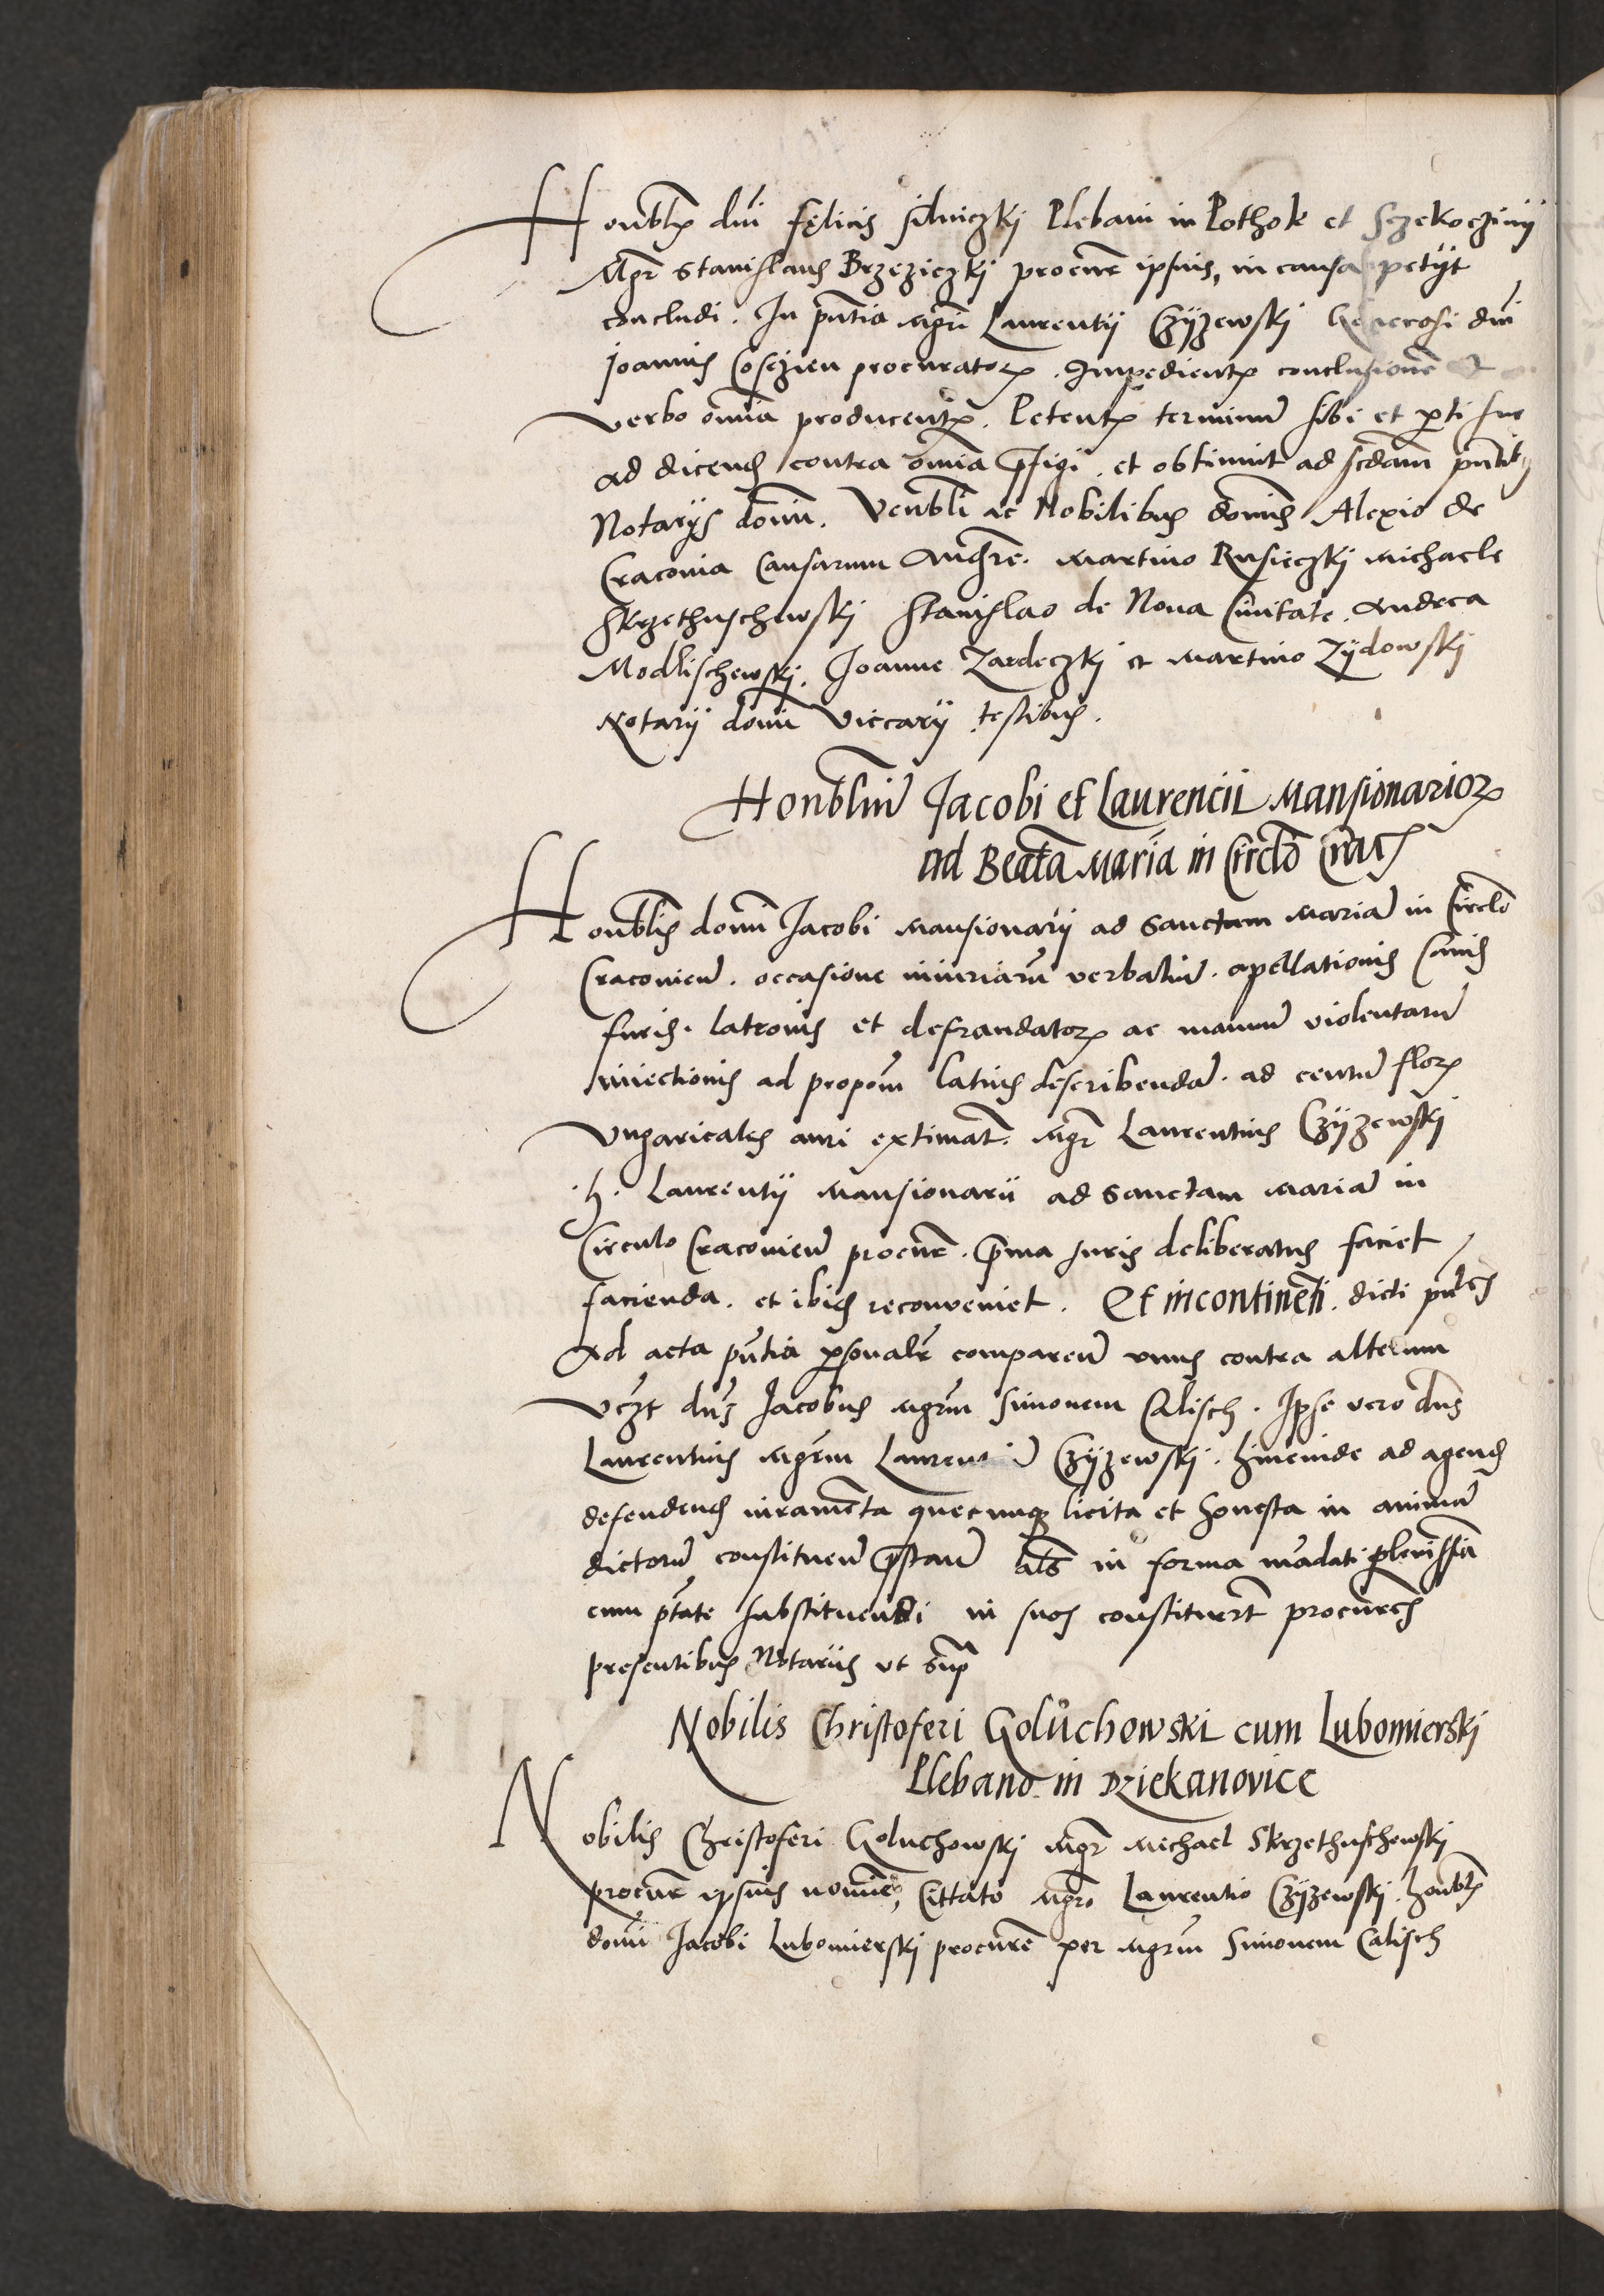 Honorabilꝭ dnī fęlicis silniczkj Plebani in Pothok et Sczekoczinij
Mgr̄ Stanislaus Brzeziczkj procur̄e ipsius, in causa petijt
concludi. In pn̄tia mgr̄i Laurentij Czÿzewskj Generosi dnī
Joannis Cosczien procuratorꝭ. Impedientꝭ conclusionē Et
verbo om̄ia producentꝭ. Petentꝭ terminū sibi et ꝑti sue
ad dicend̄ contra om̄ia p̄figi. et obtinuit ad scd̄am pn̄tibꝫ
Notarijs domī. Venbl̄i ac Nobilibus domīs Alexio de
Cracovia Causarum Auditōre. Martino Rusieczkj Michaele
Skrzethuschewskj Stanislao de Nova Civitate. Andrea
Modlischewskj. Joanne Zardeczkj et Martino Zÿdowskj
Notarij domī Viccarij testibus.
Honbliū Jacobi et Laurencii Mansionariorꝝ
ad Beatā Mariā in Circlō Crac̄
Honblis domī Jacobi Mansionarij ad Sanctam Mariā in Circlō
Cracovien̄. occasione iniuriarū verbaliū. apellationis Canis
furis. latronis et defraudatorꝭ ac manuū violentarū
iniectionis ad propom̄ latius describendā. ad centū florꝭ
Vngaricales auri extimat̄. Mgr̄ Laurentius Czÿzewskj
.h. Laurentij Mansionarii ad Sanctam Mariā in
Circulo Cracovien̄ procur̄e. p̄ma Juris deliberatus faciet
facienda. et ibid̄ reconveniet. Et incontinenti. dicti pn̄tes
Ad acta pn̄tia ꝑsonalr̄ comparen̄ unus contra alterum
vcꝫt dn̄s Jacobus mgrm̄ Simonem Calisch. Ipse vero dn̄s
Laurentius mgrm̄ Laurentiū Czÿzewskj. hincinde ad agend̄
defendend̄ iuramenta quecunqꝫ licita et honesta in animā
dictorū constituen̄ p̄stan̄ al̄s in forma mādati plenissīa
cum ptāte substituendi in suos constituer̄t procur̄es
presentibus Notariis ut sup̄
Nobilis Christoferi Golůchowski cum Lubomierskj
Plebano in Dziekanovice
Nobilis Christoferi Goluchowskj Mgr̄ Mechael Skrzethuschowskj
procur̄e ipsius nomīe, Cittato mgr̄o Laurentio Czÿzewskj. honblꝭ
domī Jacobi Lubomierskj procur̄e per mgrm̄ Simonem Calisch